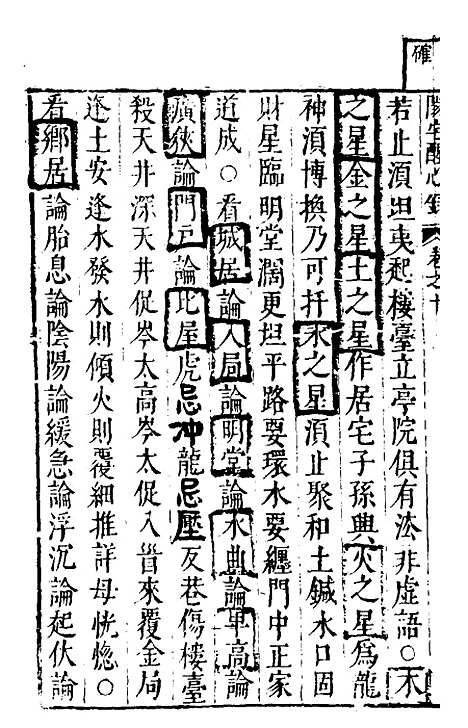 確
若止須坦夷起樓臺立亭院俱有法非虛語○木
之星金之星土之星作居宅子孫興火之星為龍
神須博換乃可扦水之星須止聚和土鍼水口固
財星臨明堂濶更坦平路要環水要纏門中正家
道成○看城居論入局論明堂論水典論單高論
廣狹論門戸論比屋虎忌冲龍忌壓反巷傷樓臺
殺天井深天井促岑太高岑太促入首來覆金局
逢土安逢水發水則傾火則覆細推詳毋恍惚○
看鄉居論胎息論陰陽論緩急論浮沉論起伏論